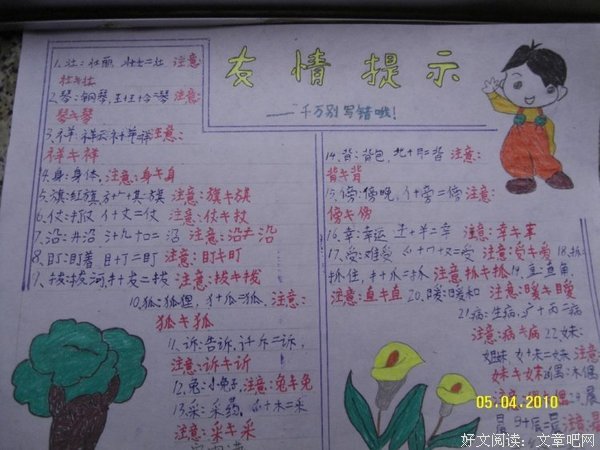 友情提示
——千万别写错哦!
1.壮:壮丽,丬+士=壮 注意:
壮≠壮
2.琴:钢琴,王+王+今=琴 注意:
琴≠琴
3.祥:祥云 礻+羊=祥 注意:
祥≠祥
4.身:身体,注意:身≠身
5.旗:红旗 方+𠂉+其=旗 注意:旗≠旗
6.仗:打仗 亻+丈=仗 注意:仗≠
7.沿:沿 氵+几+口=沿 注意:沿≠沿
8.盯:盯着 目+丁=盯 注意:盯≠盯
9.拔:拔河 注意:拔≠拔
10.狐:狐狸,犭+瓜=狐,注意:
狐≠狐
11.诉:告诉,讠+斥=诉,
注意:诉≠诉
12.兔:小兔子,注意:兔≠兔
13.采:采药,爫+木=采
注意:采≠采
14.背:背包,北+月=背 注意:
背≠背
15.傍:傍晚,亻+旁=傍 注意:
傍≠伤
16.幸:幸运 土+=幸 注意:幸≠幸
17.受:难受 爫+冖+又=受 注意:受≠爱 18.抓:
抓住,扌+爪=抓 注意:抓≠抓 19.直:直角,
注意:直≠直 20.暖:暖和 注意:暖≠暖
21.病:生病,疒+丙=病
注意:病≠病 22.妹:
姐妹 女+未=妹 注意:
妹≠妹 偶:木偶
注意: 偶
最 注意:最
05.04.2010
好文阅读:文章吧网